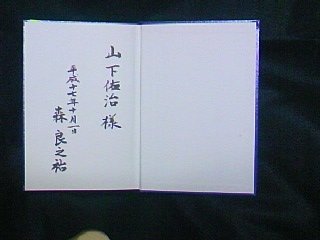 山下佑治様
平成十七年十月一日
森良之祐